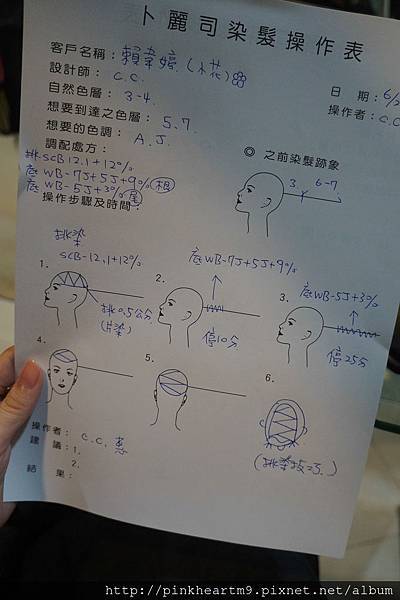 卜麗司染髮操作表
客戶名稱：賴韋婷.(小花)
設計師：C.C.
日 期：6/2
自然色層：3-4.
操作者：C.C
想要到達之色層：5.7.
想要的色調：A.J.
調配處方：
◎ 之前染髮跡象
挑SCB12.1+12%
底WB-7J+5J+9%(根)
底WB-5J+3%(尾)
3. 6-7
操作步驟及時間：
挑染
SCB-12.1+12%
底WB-7J+5J+9%
底WB-5J+3%
1.
2.
3.
挑0.5公分
(片染)
停10分
停25分
4.
5.
6.
操作者：C.C.
(挑染技巧.)
建 議：1.
2.
結 果：
http://pinkheartm9.pixnet.net/album